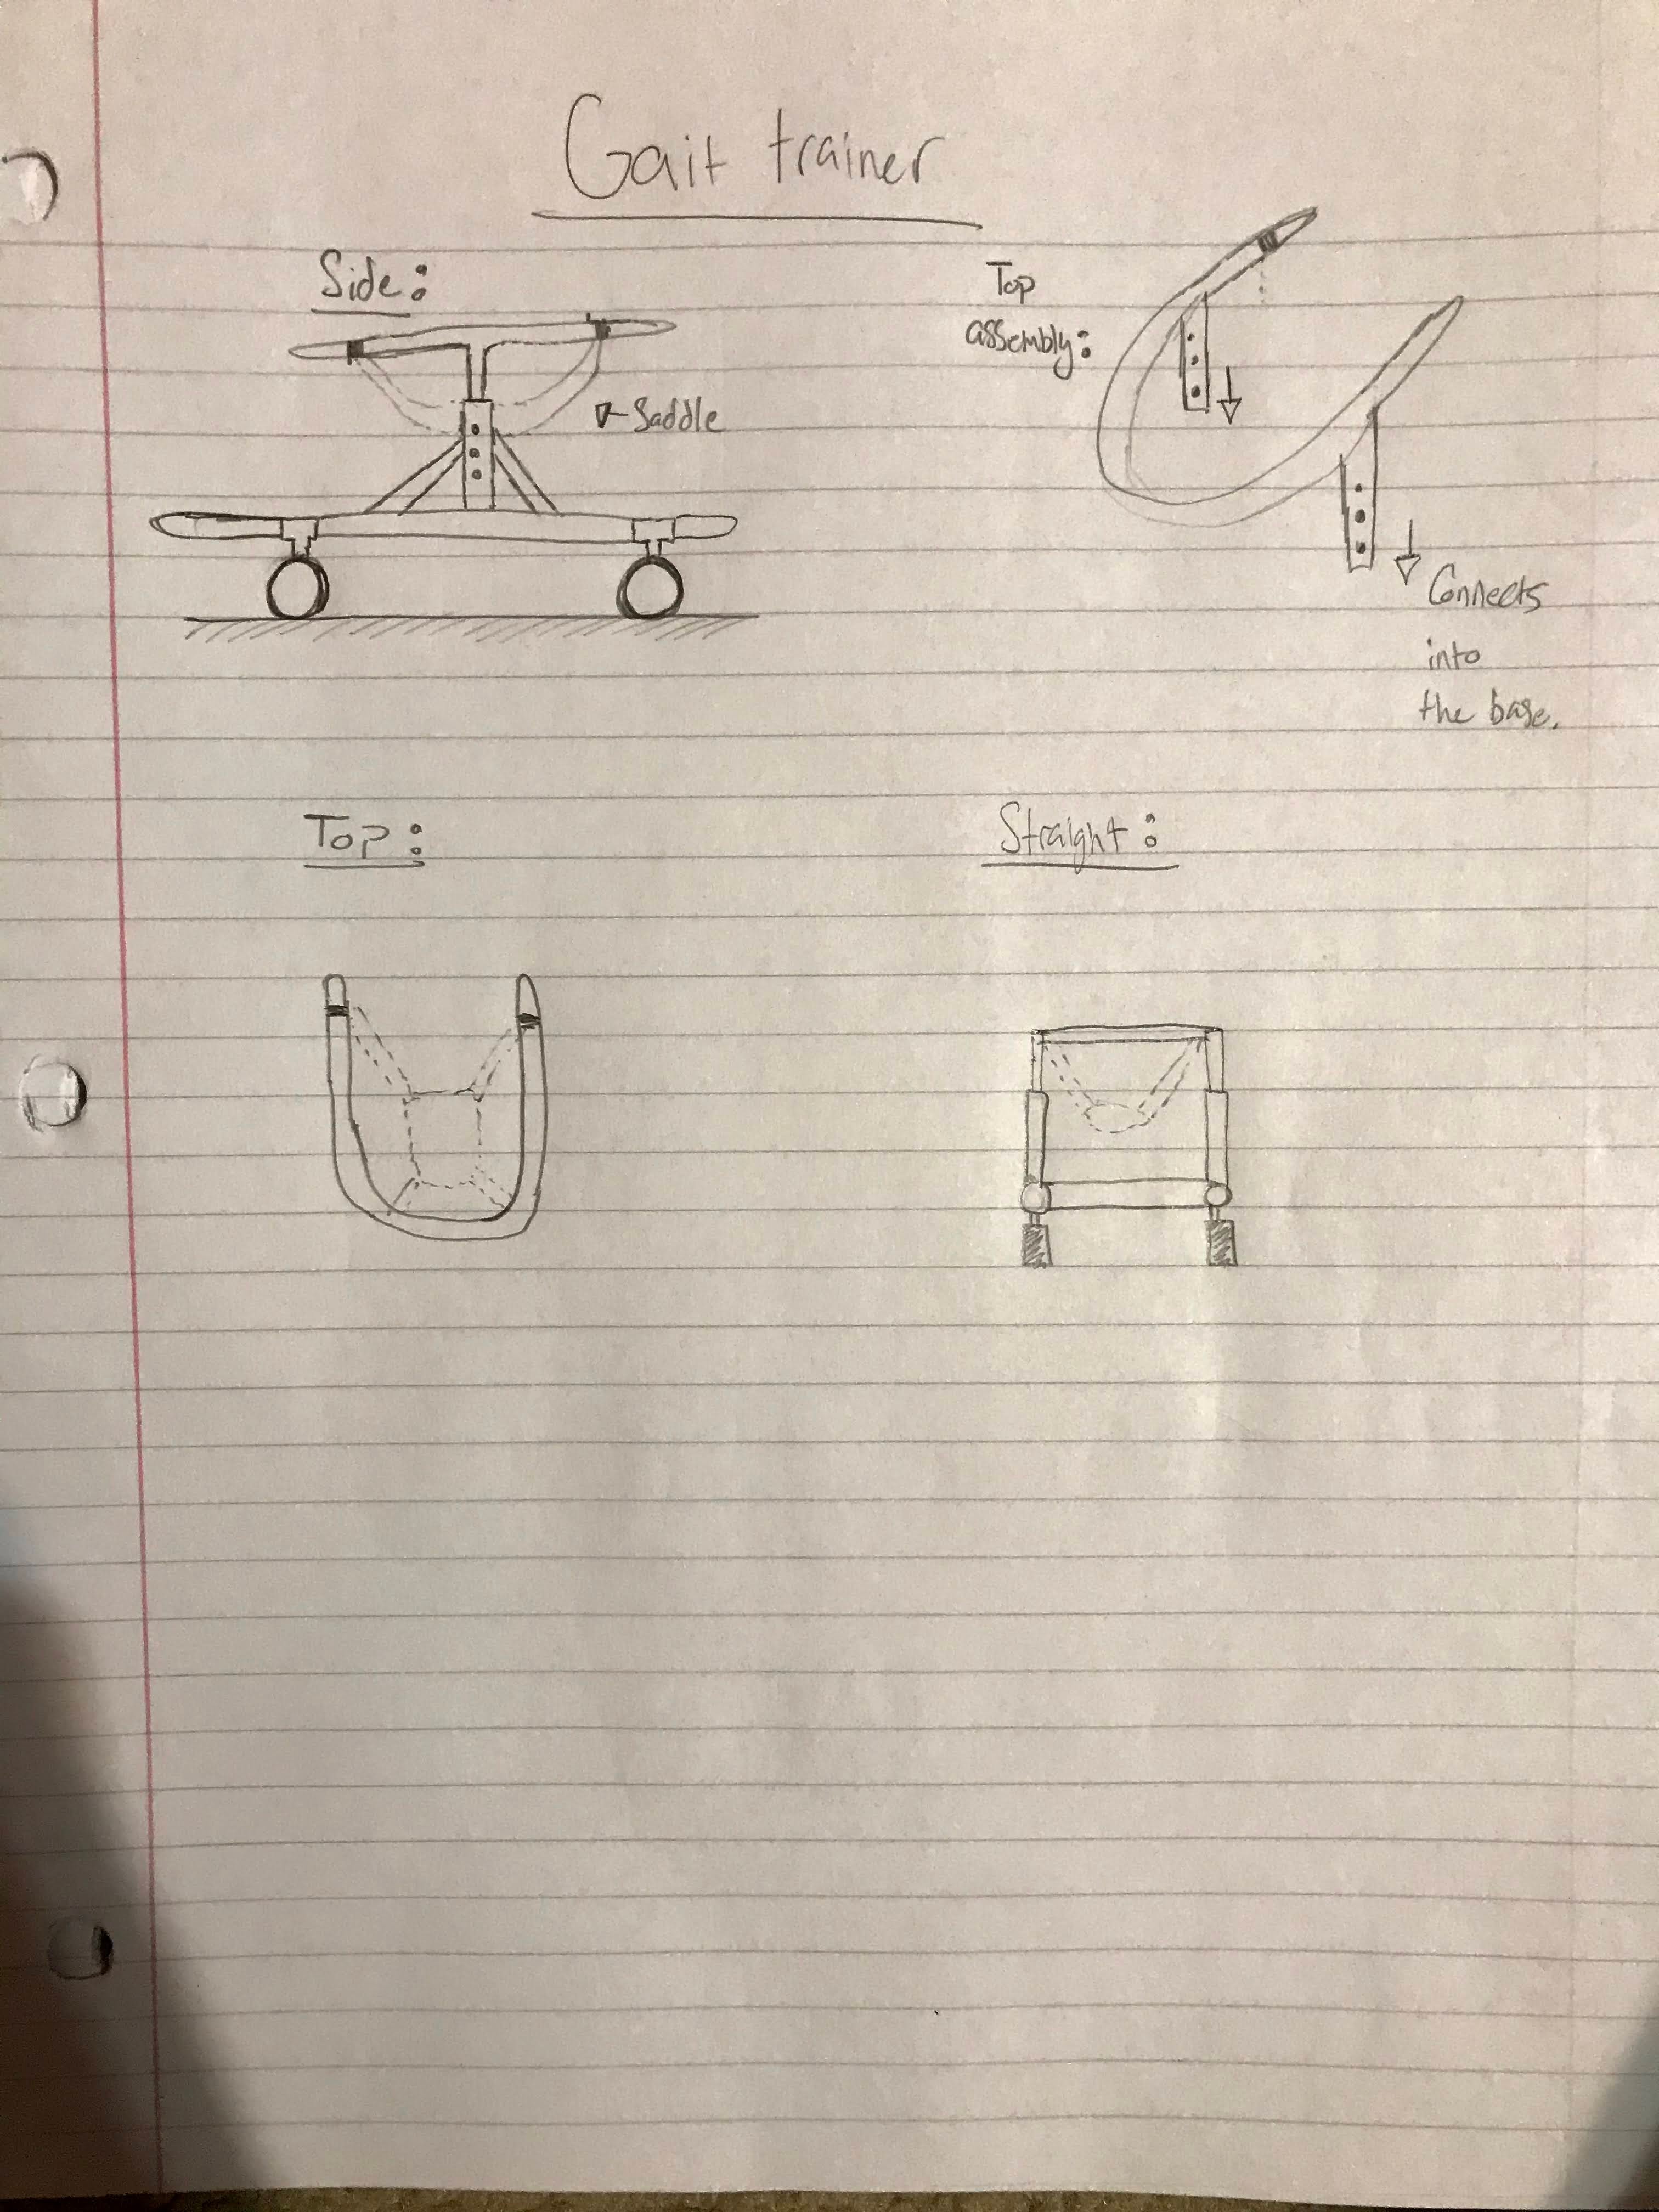 Gait trainer
Side:
Saddle
Top
assembly:
Connects
into
the base.
Top:
Straight: